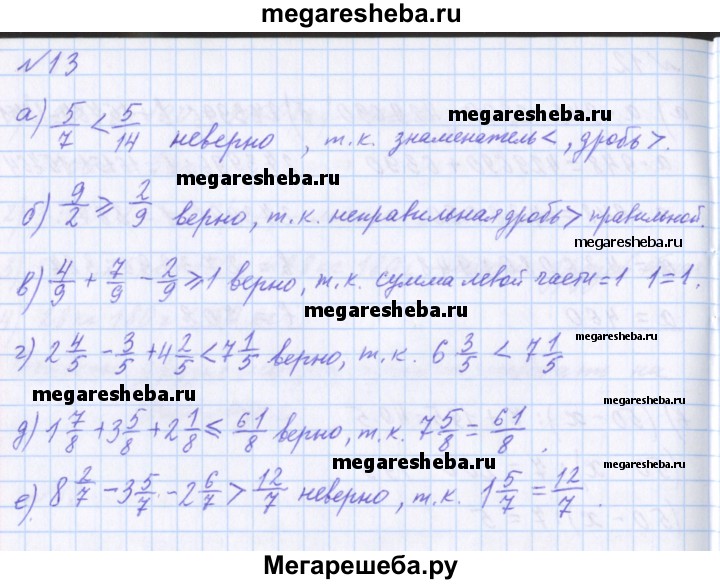 megaresheba.ru
№13
а) 5/7 < 5/14 неверно, т.к. знаменатель <, дробь >.
megaresheba.ru
megaresheba.ru
б) 9/2 ⩾ 2/9 верно, т.к. неправильная дробь > правильной.
megaresheba.ru
в) 4/9 + 7/9 - 2/9 ⩾ 1 верно, т.к. сумма левой части = 1 1 = 1.
megaresheba.ru
megaresheba.ru
г) 2 4/5 - 3/5 + 4 2/5 < 7 1/5 верно, т.к. 6 3/5 < 7 1/5
megaresheba.ru
megaresheba.ru
д) 1 7/8 + 3 5/8 + 2 1/8 ⩽ 61/8 верно, т.к. 7 5/8 = 61/8.
megaresheba.ru
megaresheba.ru
е) 8 2/7 - 3 5/7 - 2 6/7 > 12/7 неверно, т.к. 1 5/7 = 12/7.
Мегарешеба.ру